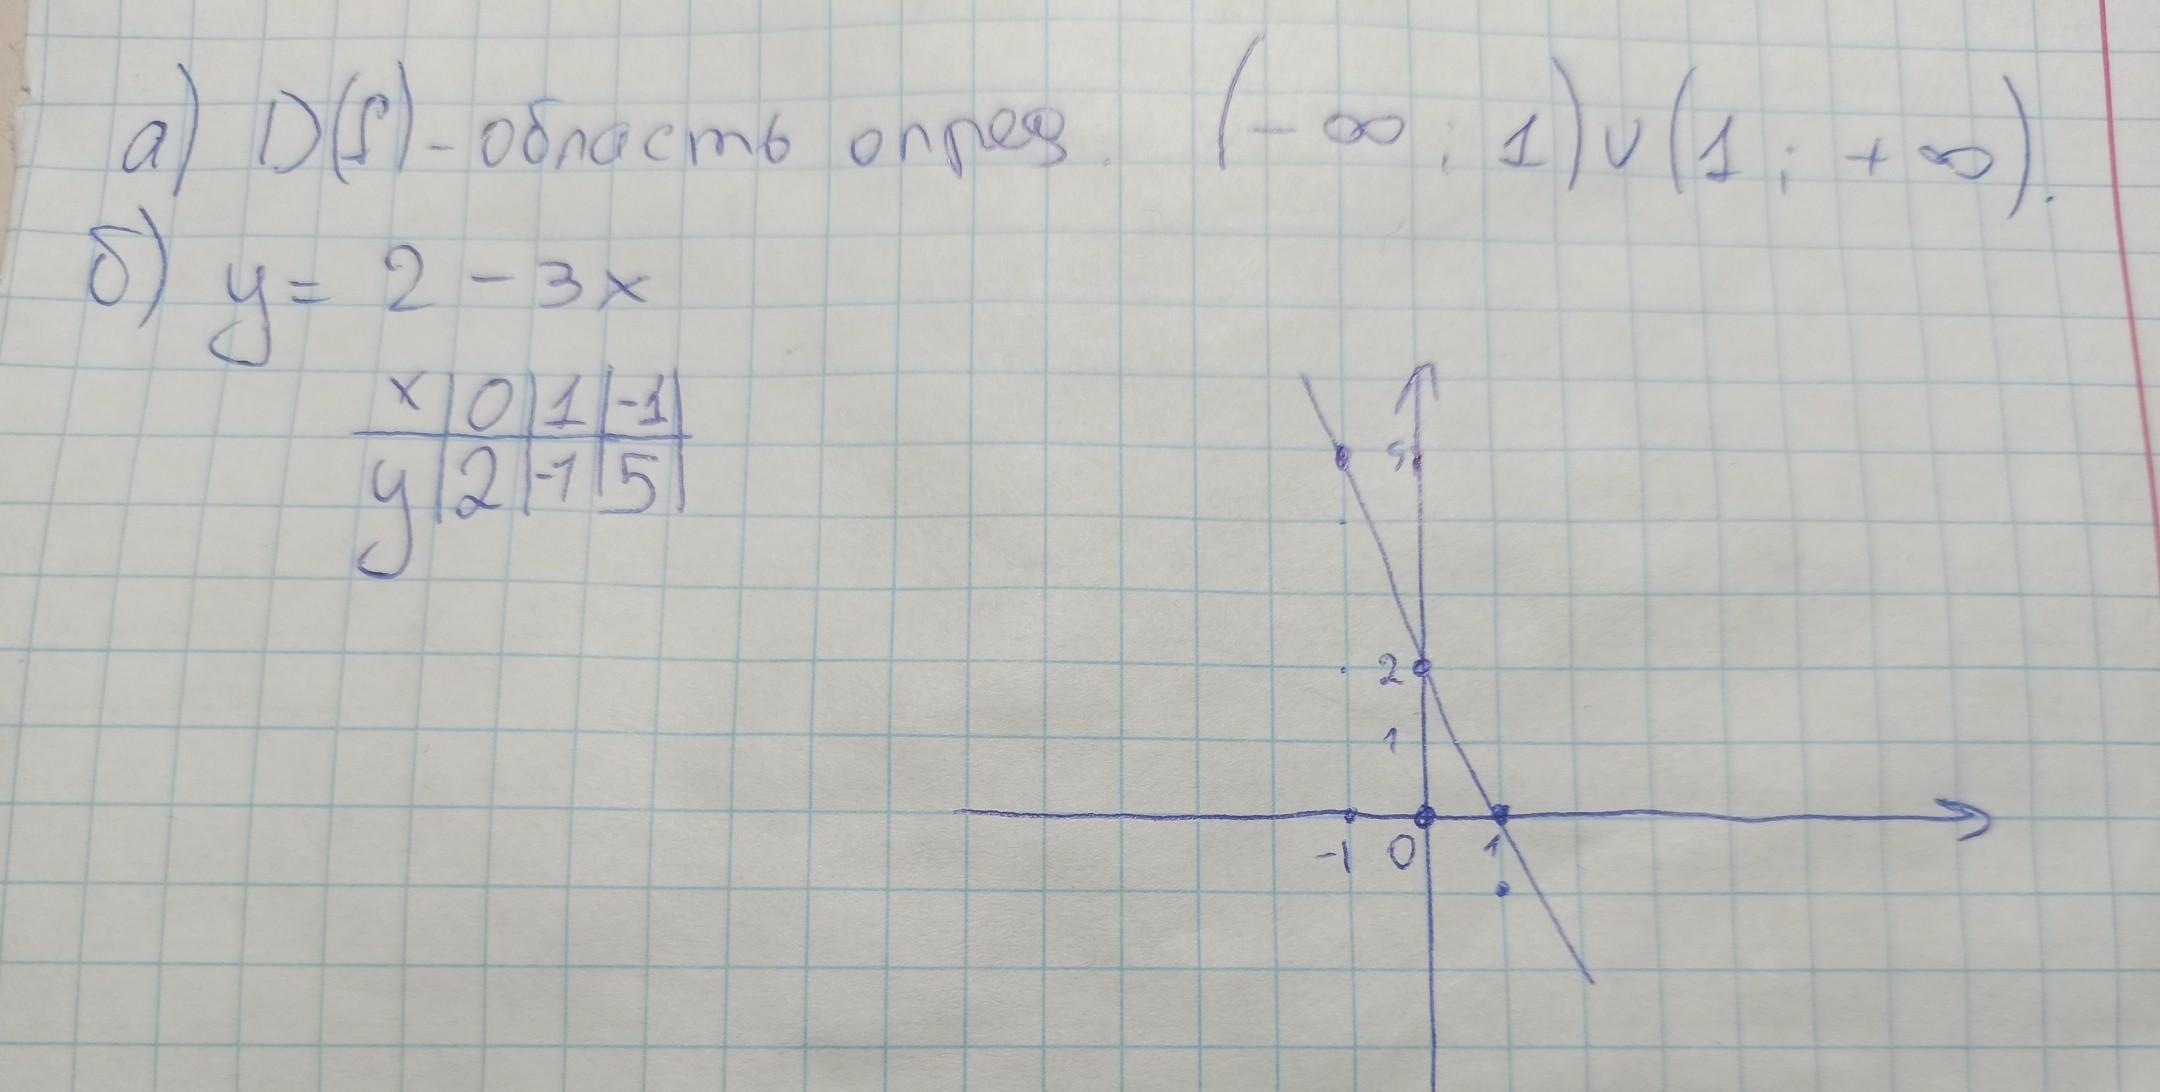 а) D(f) - область опред. (- ∞ ; 1) ∪ (1 ; + ∞).
б) y = 2 - 3x
x | 0 | 1 | -1 |
y | 2 | -1 | 5 |
5
2
1
-1 0 1